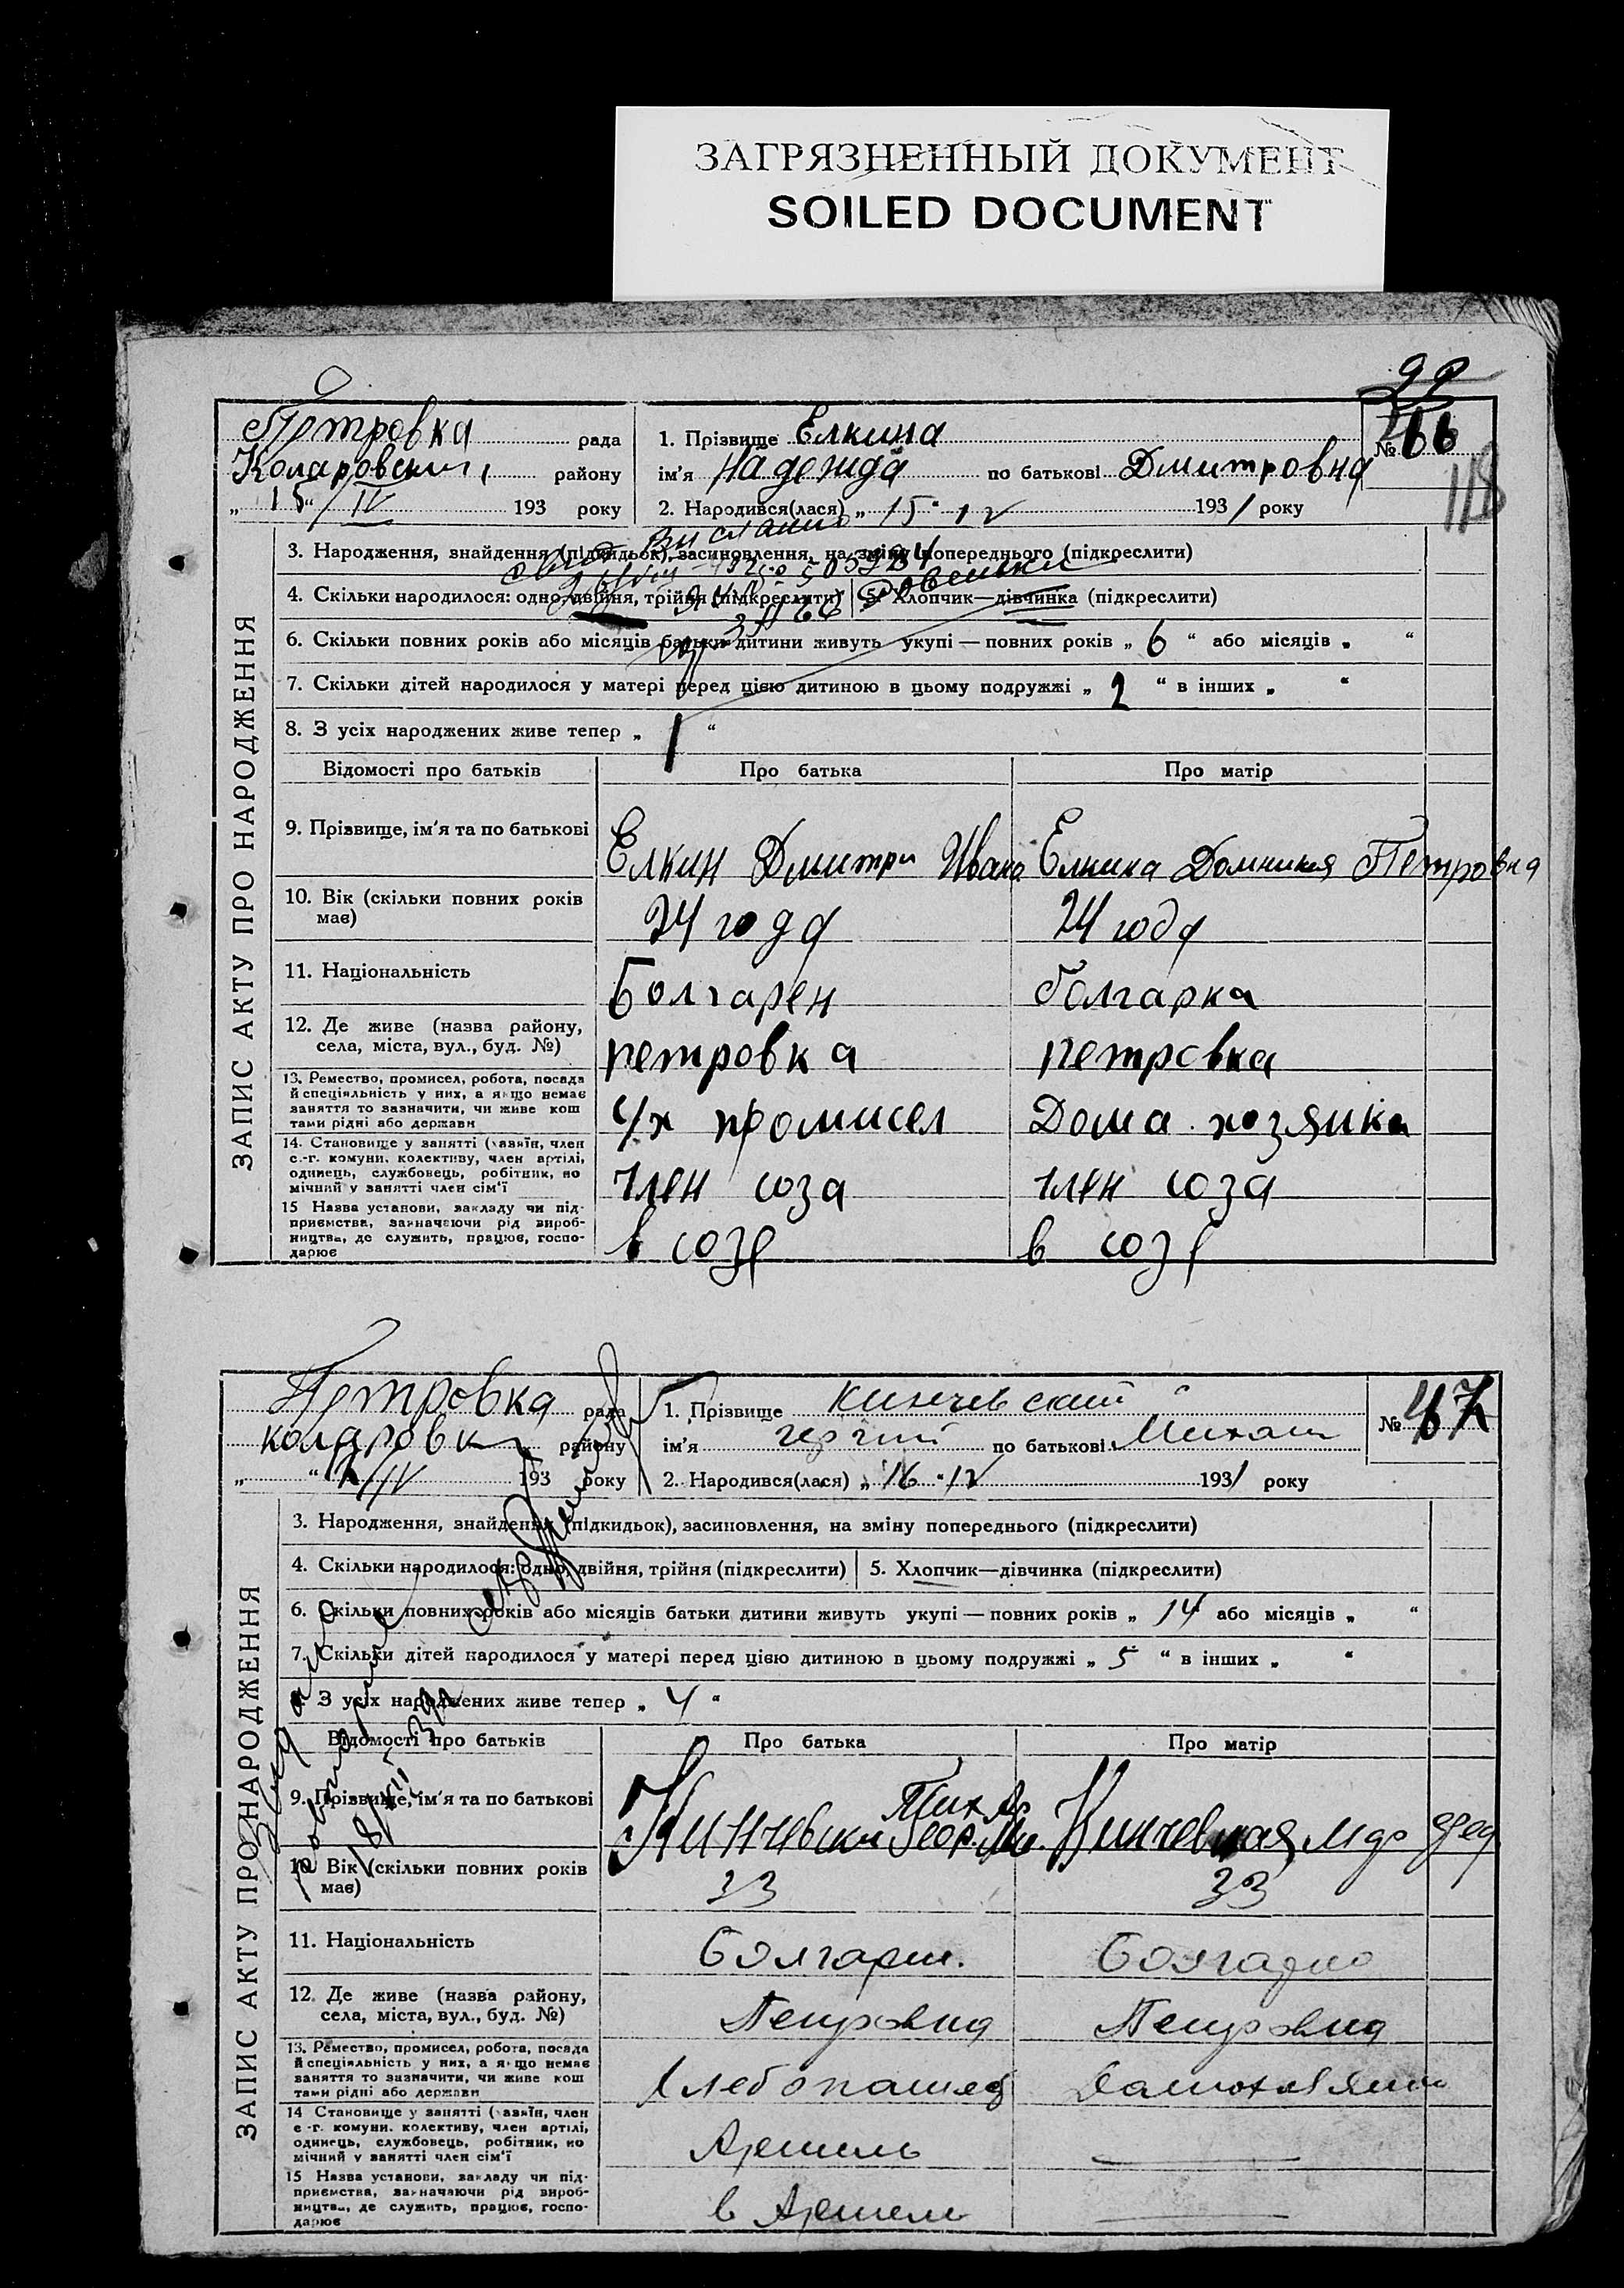 ЗАГРЯЗНЕННЫЙ ДОКУМЕНТ
SOILED DOCUMENT
99
Петровка рада
Коларовский району
„15“ / IV 193 року
1. Прізвище Елкина
ім'я Надежда по батькові Дмитровна
2. Народився(лася) „15“ IV 1931 року
№ 66
118
ЗАПИС АКТУ ПРО НАРОДЖЕННЯ
3. Народження, знайдення (підкидьок), засиновлення, на зміну попереднього (підкреслити)
4. Скільки народилося: одно, двійня, трійня (підкреслити) 5. Хлопчик—дівчинка (підкреслити)
6. Скільки повних років або місяців батьки дитини живуть укупі — повних років „ 6 “ або місяців „ “
7. Скільки дітей народилося у матері перед цією дитиною в цьому подружжі „ 2 “ в інших „ “
8. З усіх народжених живе тепер „ 1 “
Відомості про батьків Про батька Про матір
9. Прізвище, ім'я та по батькові
Елкин Дмитри Ивано Елкина Домникия Петровна
10. Вік (скільки повних років має)
24 года 24 года
11. Національність
Болгарен болгарка
12. Де живе (назва району, села, міста, вул., буд. №)
петровка петровка
13. Ремество, промисел, робота, посада й спеціяльність у них, а якщо немає заняття то зазначити, чи живе кош тами рідні або держави
с/х промисел Дома. хозяйка
14. Становище у занятті (хазяїн, член с.-г. комуни, колективу, член артілі, одинець, службовець, робітник, по мічний у занятті член сім'ї
член соза член соза
15 Назва установи, закладу чи під- приємства, зазначаючи рід вироб- ництва, де служить, працює, госпо- дарює
в созе в созе
Петровка рада
коларовк району
„ “ /IV 193 року
1. Прізвище Кинчевский
ім'я по батькові Михаил
2. Народився(лася) „16“ IV 1931 року
№ 67
ЗАПИС АКТУ ПРО НАРОДЖЕННЯ
3. Народження, знайдення (підкидьок), засиновлення, на зміну попереднього (підкреслити)
4. Скільки народилося: одно, двійня, трійня (підкреслити) 5. Хлопчик—дівчинка (підкреслити)
6. Скільки повних років або місяців батьки дитини живуть укупі — повних років „ 14 або місяців „ “
7. Скільки дітей народилося у матері перед цією дитиною в цьому подружжі „ 5 “ в інших „ “
З усіх народжених живе тепер „ 4 “
Відомості про батьків Про батька Про матір
9. Прізвище, ім'я та по батькові
Кинчевски Кинчевская
10. Вік (скільки повних років має)
33 33
11. Національність
Болгарин. Болгарка
12. Де живе (назва району, села, міста, вул., буд. №)
Петровка Петровка
13. Ремество, промисел, робота, посада й спеціяльність у них, а якщо немає заняття то зазначити, чи живе кош тами рідні або держави
Хлебопашец Домохозяйка
14 Становище у занятті (хазяїн, член с.-г. комуни. колективу, член артілі, одинець, службовець, робітник, по мічний у занятті член сім'ї
Артель
15 Назва установи, закладу чи під- приємства, зазначаючи рід вироб- ництва, де служить, працює, госпо- дарює
в Артели